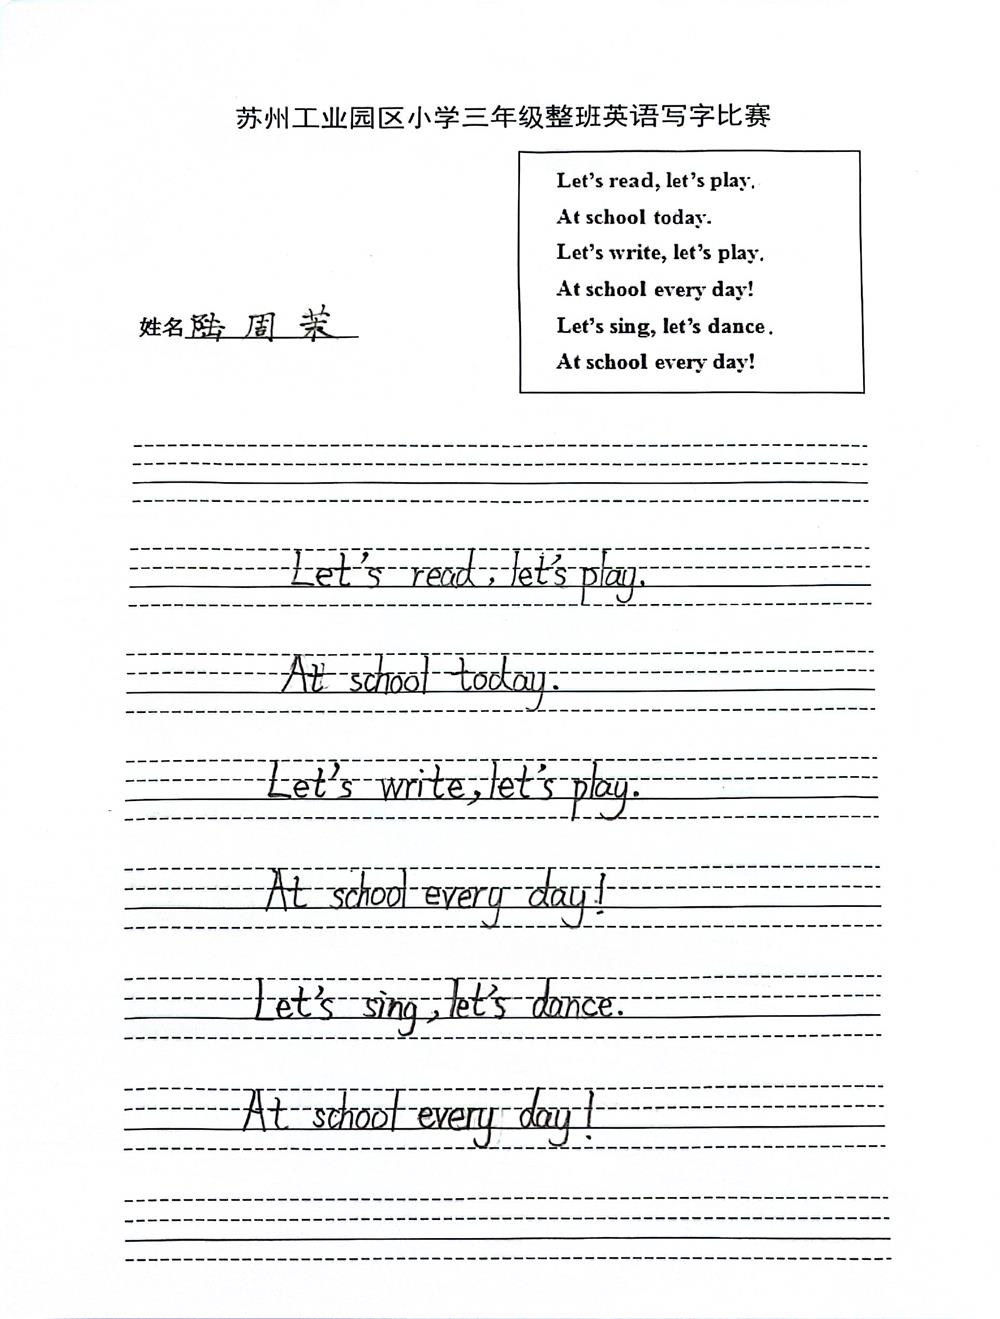 苏州工业园区小学三年级整班英语写字比赛
Let's read, let's play.
At school today.
Let's write, let's play.
At school every day!
Let's sing, let's dance.
At school every day!
姓名 陆 周 茉
Let's read, let's play.
At school today.
Let's write, let's play.
At school every day!
Let's sing, let's dance.
At school every day!